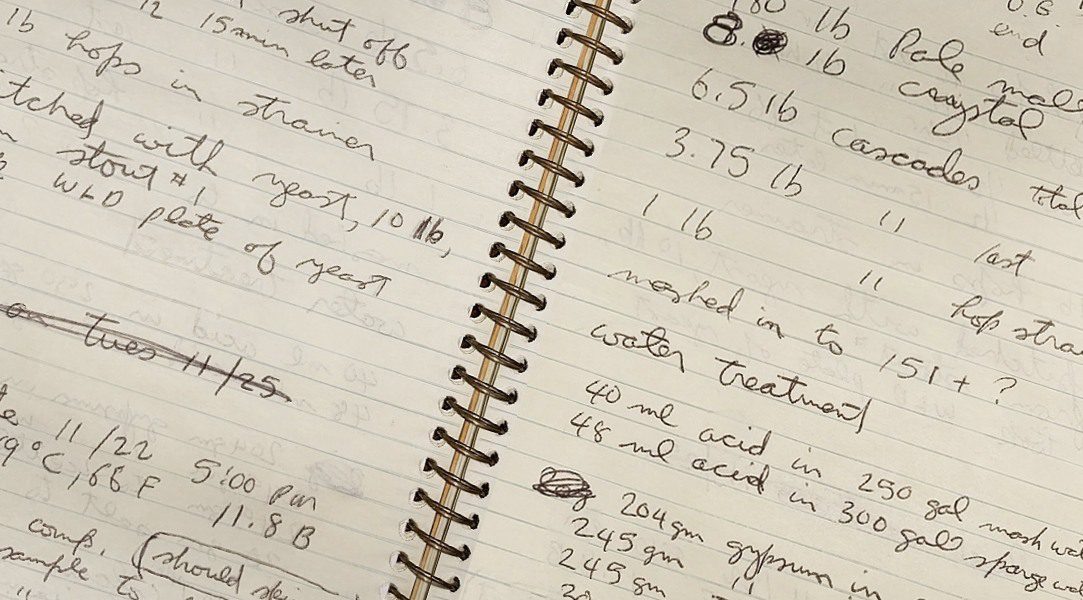 12 shut off
15 min later
lb hops in strainer
pitched with yeast, 10 lb,
stout #1
WLD plate of yeast
on tues 11/25
11/22 5:00 pm
19°C, 66 F 11.8 B
comp. should
sample to
180 lb Pale malt
8. lb crystal
6.5 lb cascades total
3.75 lb " last
1 lb " hop
mashed in to 151 + ?
water treatment
40 ml acid in 250 gal mash
48 ml acid in 300 gals sparge
204 gm gypsum in
245 gm "
245 gm
O.G.
end